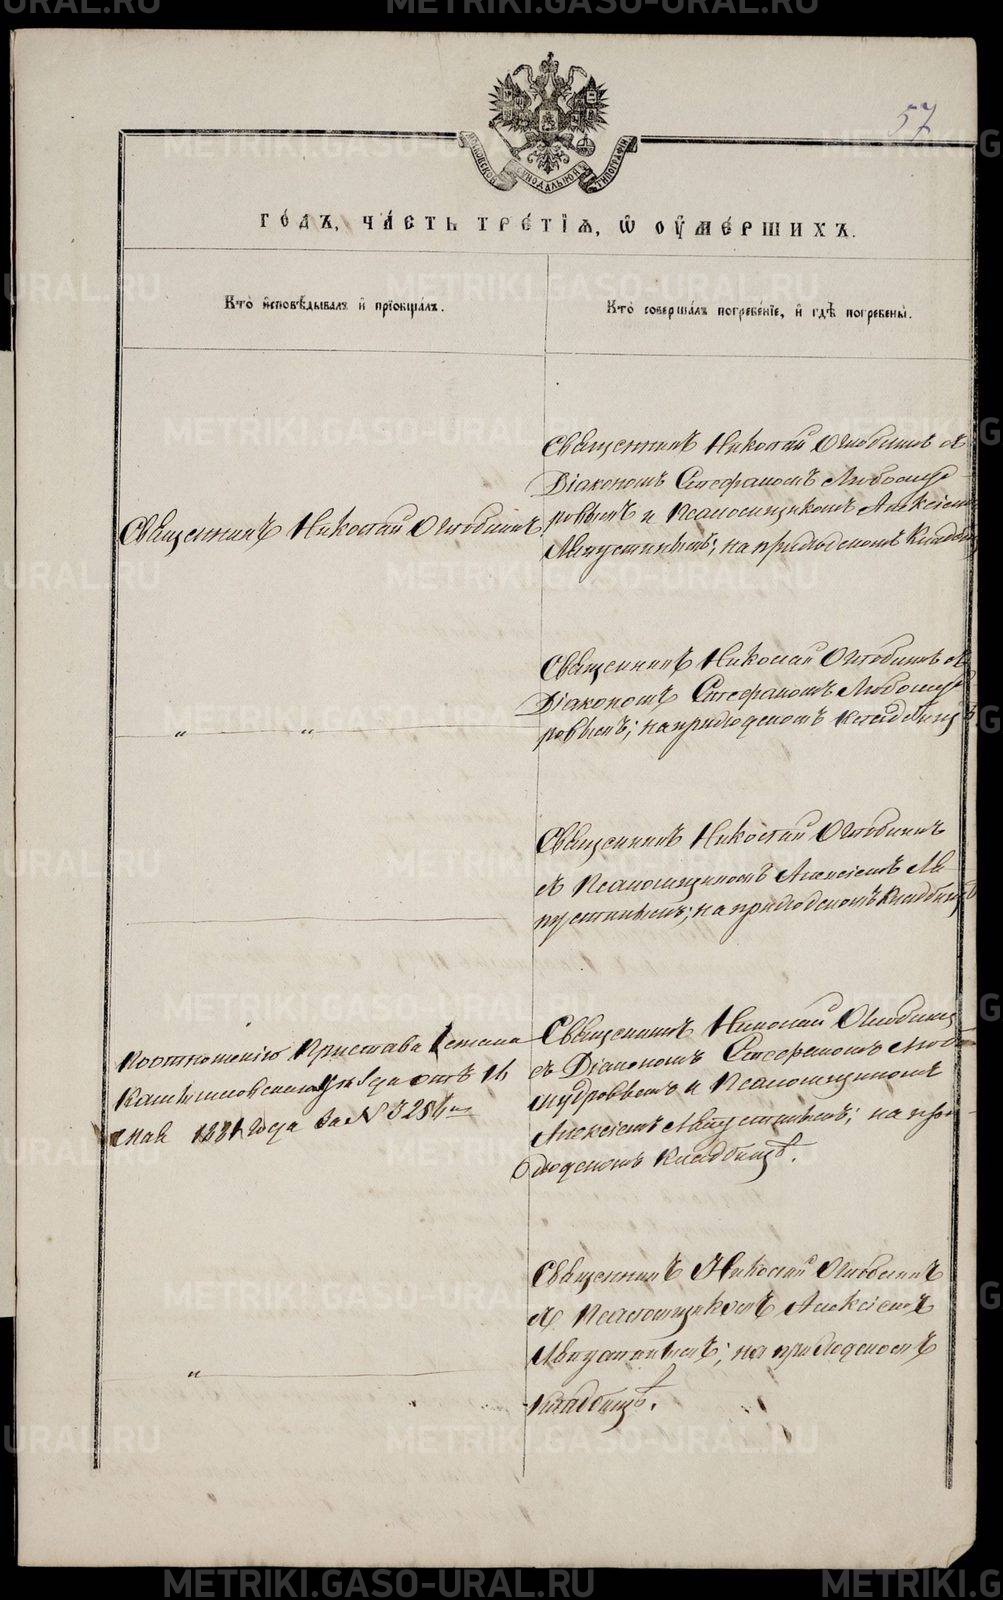 57
МОСКОВСКОЙ СѴНОДАЛЬНОЙ ТИПОГРАФІИ
го́дъ, ча́сть тре́тїѧ, ѡ҆ ᲂу҆ме́ршихъ.
Кто̀ и҆сповѣ́дывалъ и҆ прїобща́лъ.
Кто̀ соверша́лъ погребе́нїе, и҆ гдѣ̀ погребены̀.
Священникъ Николай Оглоблинъ
Священникъ Николай Оглоблинъ съ
Діакономъ Стефаномъ Любомуд
ровымъ и Псаломщикомъ Алексіемъ
Августинымъ; на приходскомъ кладбищѣ
Священникъ Николай Оглоблинъ съ
Діакономъ Стефаномъ Любомуд
ровымъ; на приходскомъ кладбищѣ
„ „
Священникъ Николай Оглоблинъ
съ Псаломщикомъ Алексіемъ Ав
густинымъ; на приходскомъ кладбищѣ
Поотношенію Пристава 1 стана
Камышловскаго уѣзда отъ 16
мая 1881 года за №
Священникъ Николай Оглоблинъ
съ Діакономъ Стефаномъ Любо
мудровымъ и Псаломщикомъ
Алексіемъ Августинымъ; на при
ходскомъ кладбищѣ.
Священникъ Николай Оглоблинъ
съ Псаломщикомъ Алексіемъ
Августинымъ; на приходскомъ
кладбищѣ.
„
METRIKI.GASO-URAL.RU